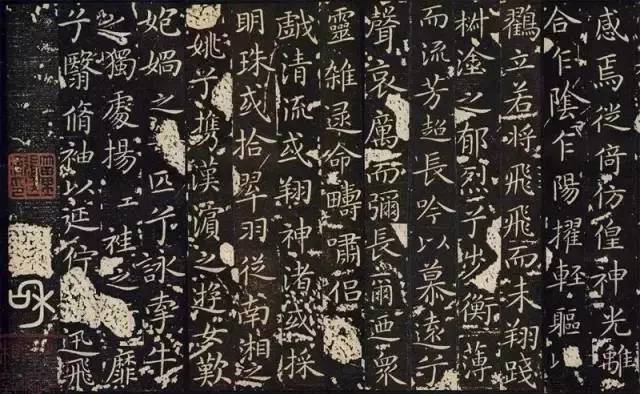 感焉徙倚仿偟神光離
合乍陰乍陽擢輕軀以
鸖立若將飛飛而未翔踐
椒塗之郁烈兮步衡薄
而流芳超長吟以慕遠兮
聲哀厲而彌長爾迺衆
靈雜遝命疇嘯侶
戲清流或翔神渚或採
明珠或拾翠羽從南湘之
姚兮攜漢濱之遊女歎
媧之匹兮詠牽牛
之獨處揚袿之靡
兮翳脩袖以延佇迅飛